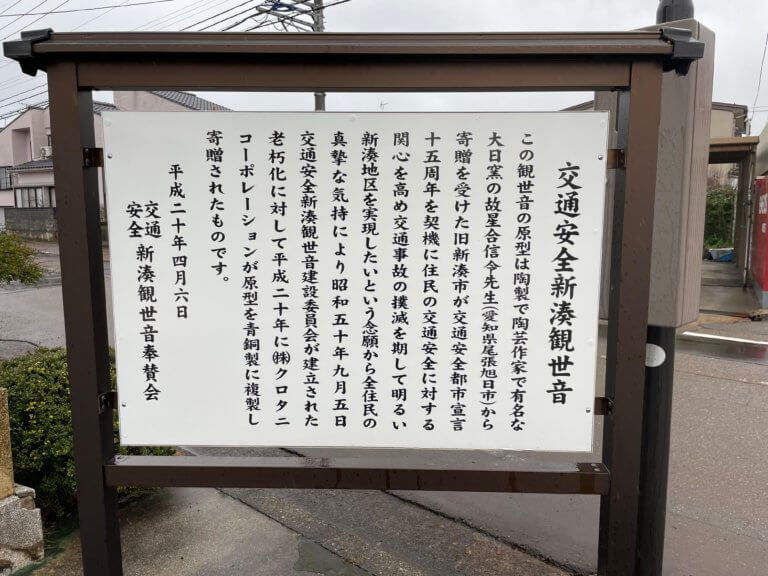 交通安全新湊観世音
この観世音の原型は陶製で陶芸作家で有名な
大日窯の故星合信令先生(愛知県尾張旭市)から
寄贈を受けた旧新湊市が交通安全都市宣言
十五周年を契機に住民の交通安全に対する
関心を高め交通事故の撲滅を期して明るい
新湊地区を実現したいという念願から全住民の
真摯な気持により昭和五十年九月五日
交通安全新湊観世音建設委員会が建立された
老朽化に対して平成二十年に㈱クロタニ
コーポレーションが原型を青銅製に複製し
寄贈されたものです。
平成二十年四月六日
交通安全 新湊観世音奉賛会